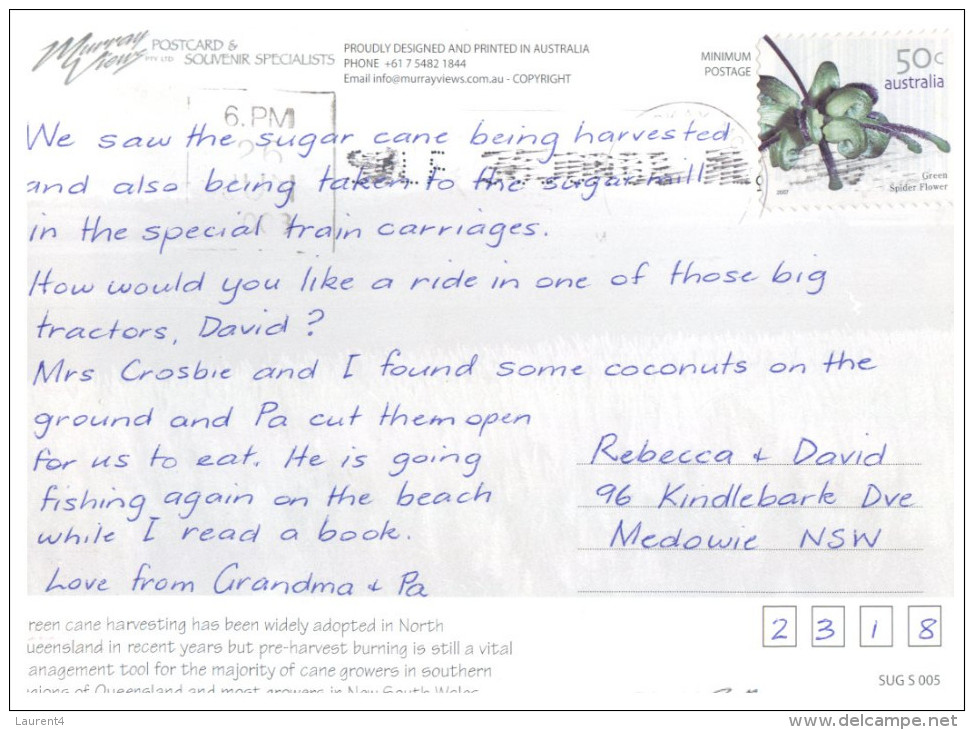 Murray Views PTY LTD
POSTCARD &
SOUVENIR SPECIALISTS
PROUDLY DESIGNED AND PRINTED IN AUSTRALIA
PHONE +61 7 5482 1844
Email info@murrayviews.com.au - COPYRIGHT
MINIMUM
POSTAGE
50c
australia
Green
Spider Flower
2007
6.PM
We saw the sugar cane being harvested
and also being taken to the sugar mill
in the special train carriages.
How would you like a ride in one of those big
tractors, David?
Mrs Crosbie and I found some coconuts on the
ground and Pa cut them open
for us to eat. He is going
fishing again on the beach
while I read a book.
Love from Grandma & Pa
Rebecca & David
96 Kindlebark Dve
Medowie NSW
2 3 1 8
reen cane harvesting has been widely adopted in North
ueensland in recent years but pre-harvest burning is still a vital
anagement tool for the majority of cane growers in southern
of Queensland and most growers in New South Wales
SUG S 005
Laurent4
www.delcampe.net